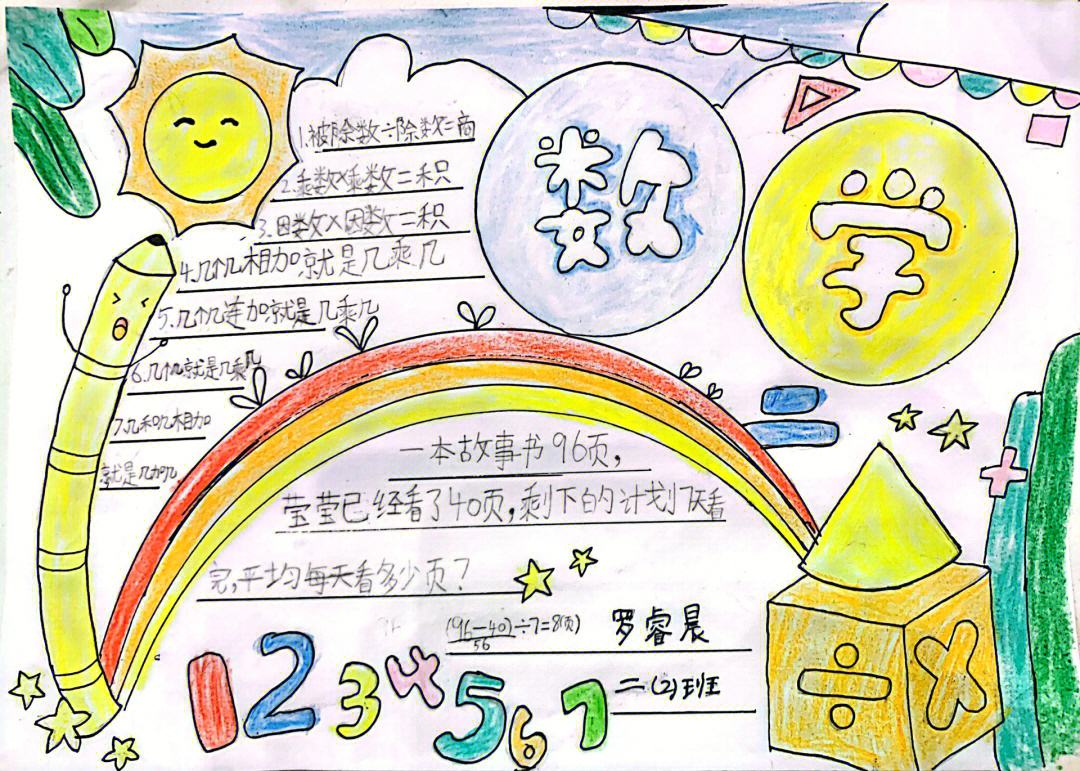 数学
1.被除数÷除数=商
2.乘数×乘数=积
3.因数×因数=积
4.几个几相加就是几乘几
5.几个几连加就是几乘几
6.几个几就是几乘几
7.几和几相加
就是几加几
一本故事书96页,
莹莹已经看了40页,剩下的计划7天看
完,平均每天看多少页?
(96-40)÷7=8(页)
56
罗睿晨
二(2)班
1234567
+
÷ ×